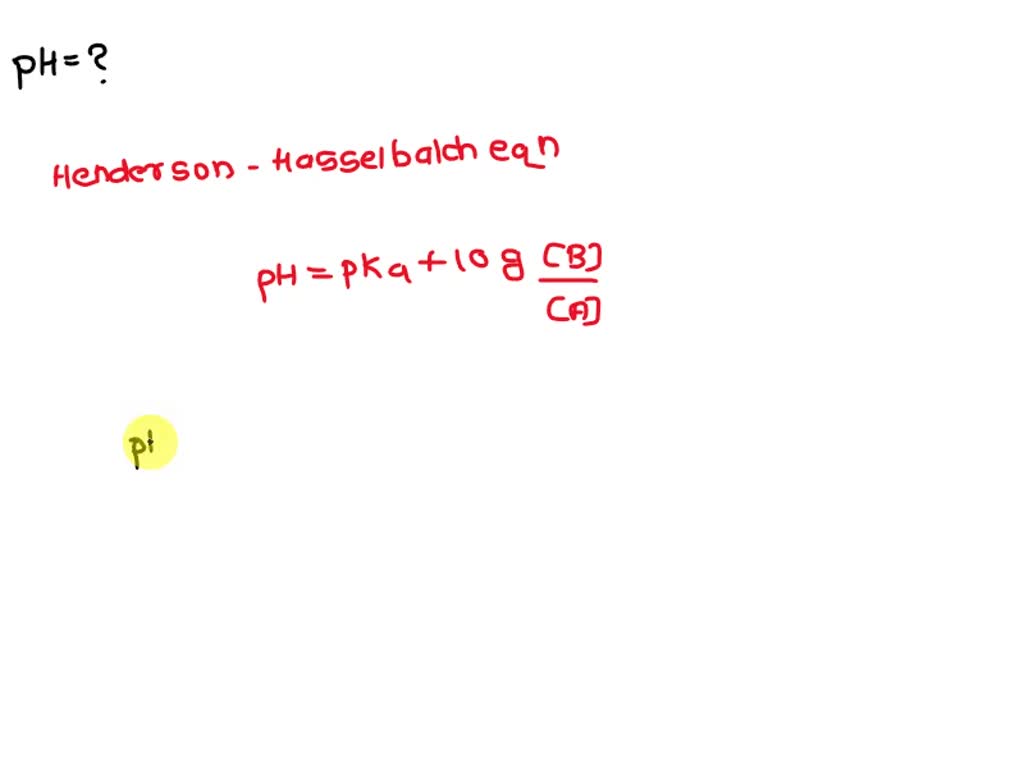 pH = ?
Henderson - Hasselbalch eqn
pH = pKa + log [B]
[A]
pH